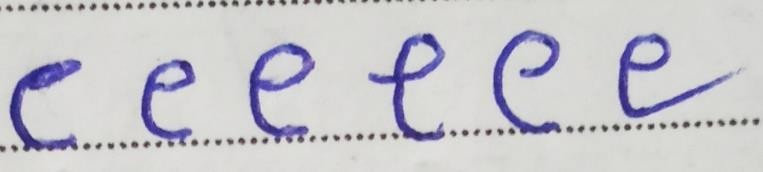 e e e e e e